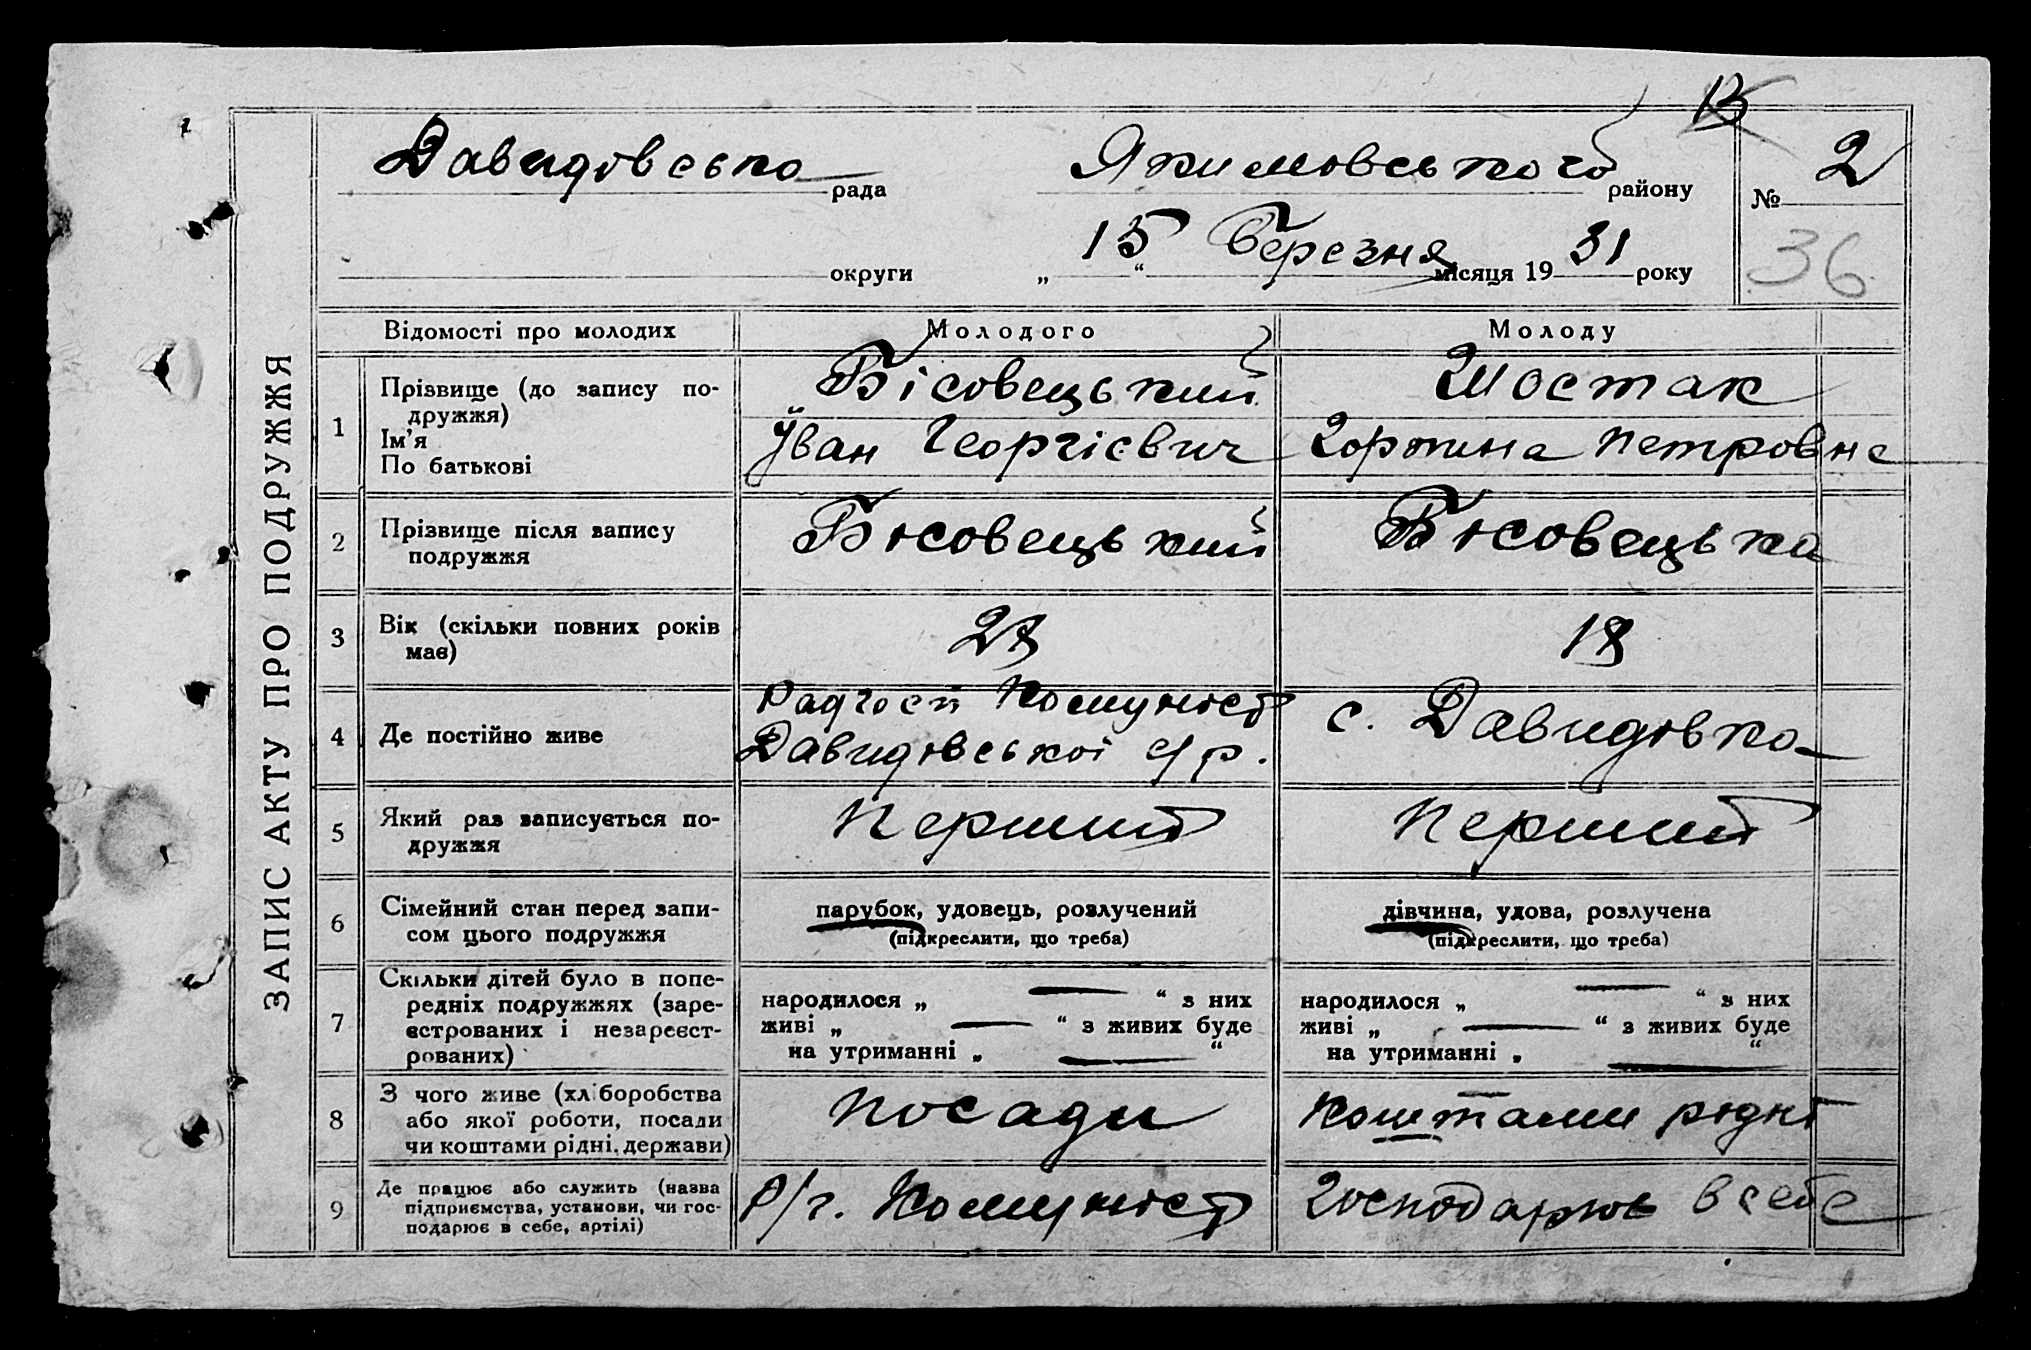 13
ЗАПИС АКТУ ПРО ПОДРУЖЖЯ
Давидовсько рада Якимовського району № 2
округи „15“ Березня місяця 1931 року 36
Відомості про молодих Молодого Молоду
1 Прізвище (до запису по-
дружжя)
Ім'я
По батькові
Бісовецький Шостак
Іван Георгієвич Горпина Петровна
2 Прізвище після запису
подружжя
Бісовецький Бісовецька
3 Вік (скільки повних років
має)
28 18
4 Де постійно живе
Радгосп Комуніст
Давидівської с/р. с. Давидівка
5 Який раз записується по-
дружжя
Перший Перший
6 Сімейний стан перед запи-
сом цього подружжя
парубок, удовець, розлучений дівчина, удова, розлучена
(підкреслити, що треба) (підкреслити, що треба)
7 Скільки дітей було в попе-
редніх подружжях (заре-
єстрованих і незареєст-
рованих)
народилося „ — “ з них народилося „ — “ з них
живі „ — “ з живих буде живі „ — “ з живих буде
на утриманні „ — “ на утриманні „ — “
8 З чого живе (хліборобства
або якої роботи, посади
чи коштами рідні, держави)
посади коштами рідні
9 Де працює або служить (назва
підприємства, установи, чи гос-
подарює в себе, артілі)
Р/г. Комуніст Господарює в себе